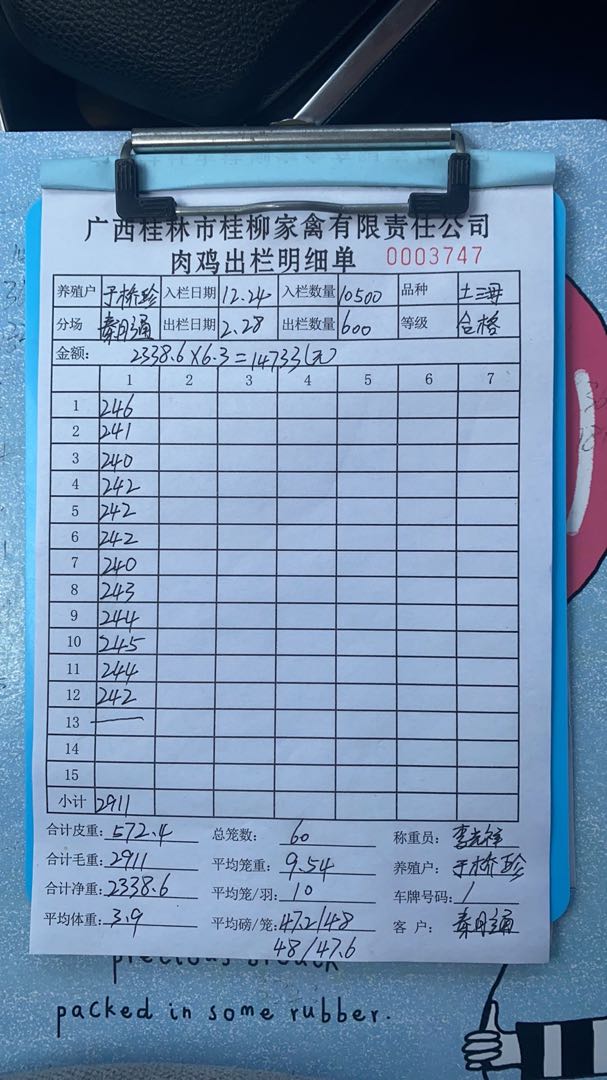 广西桂林市桂柳家禽有限责任公司
肉鸡出栏明细单 0003747
养殖户 于桥珍 入栏日期 12.24 入栏数量 10500 品种 土三母
分场 秦月通 出栏日期 2.28 出栏数量 600 等级 合格
金额: 2338.6×6.3=14733(元)
1 2 3 4 5 6 7
1 246
2 241
3 240
4 242
5 242
6 242
7 240
8 243
9 244
10 245
11 244
12 242
13 —
14
15
小计 2911
合计皮重: 572.4 总笼数: 60 称重员:
合计毛重: 2911 平均笼重: 9.54 养殖户: 于桥珍
合计净重: 2338.6 平均笼/羽: 10 车牌号码: /
平均体重: 3.9 平均磅/笼: 47.2/48 客户: 秦月通
48/47.6
packed in some rubber.